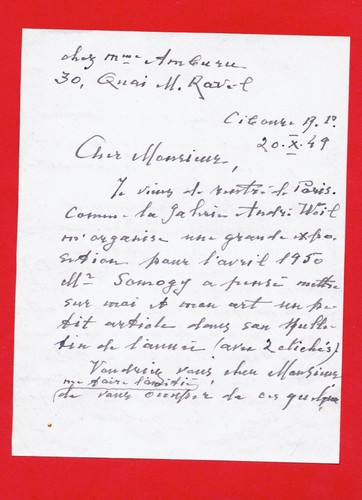 chez Mme Amburu
30, Quai M. Ravel
Ciboure B.P.
20.X.49
Cher Monsieur,
Je viens de rentré de Paris.
Comme la Galerie André Weil
m'organise une grande expo-
sition pour l'avril 1950
Mr Somogy a pensé mettre
sur moi et mon art un pe
tit article dans son Bulle-
tin de l'année (avec 2 clichés)
Voudriez vous, cher Monsieur
me faire l'amitié
de vous occuper de ces quelque